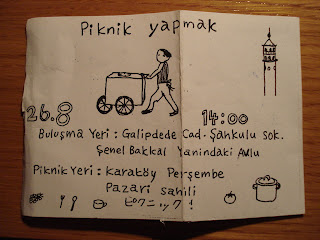 Piknik yapmak
26.8
14:00
Buluşma Yeri : Galipdede Cad. Şahkulu Sok.
Şenel Bakkal Yanindaki Avlu
Piknik Yeri : Karaköy Perşembe
Pazari sahili
ピクニック！